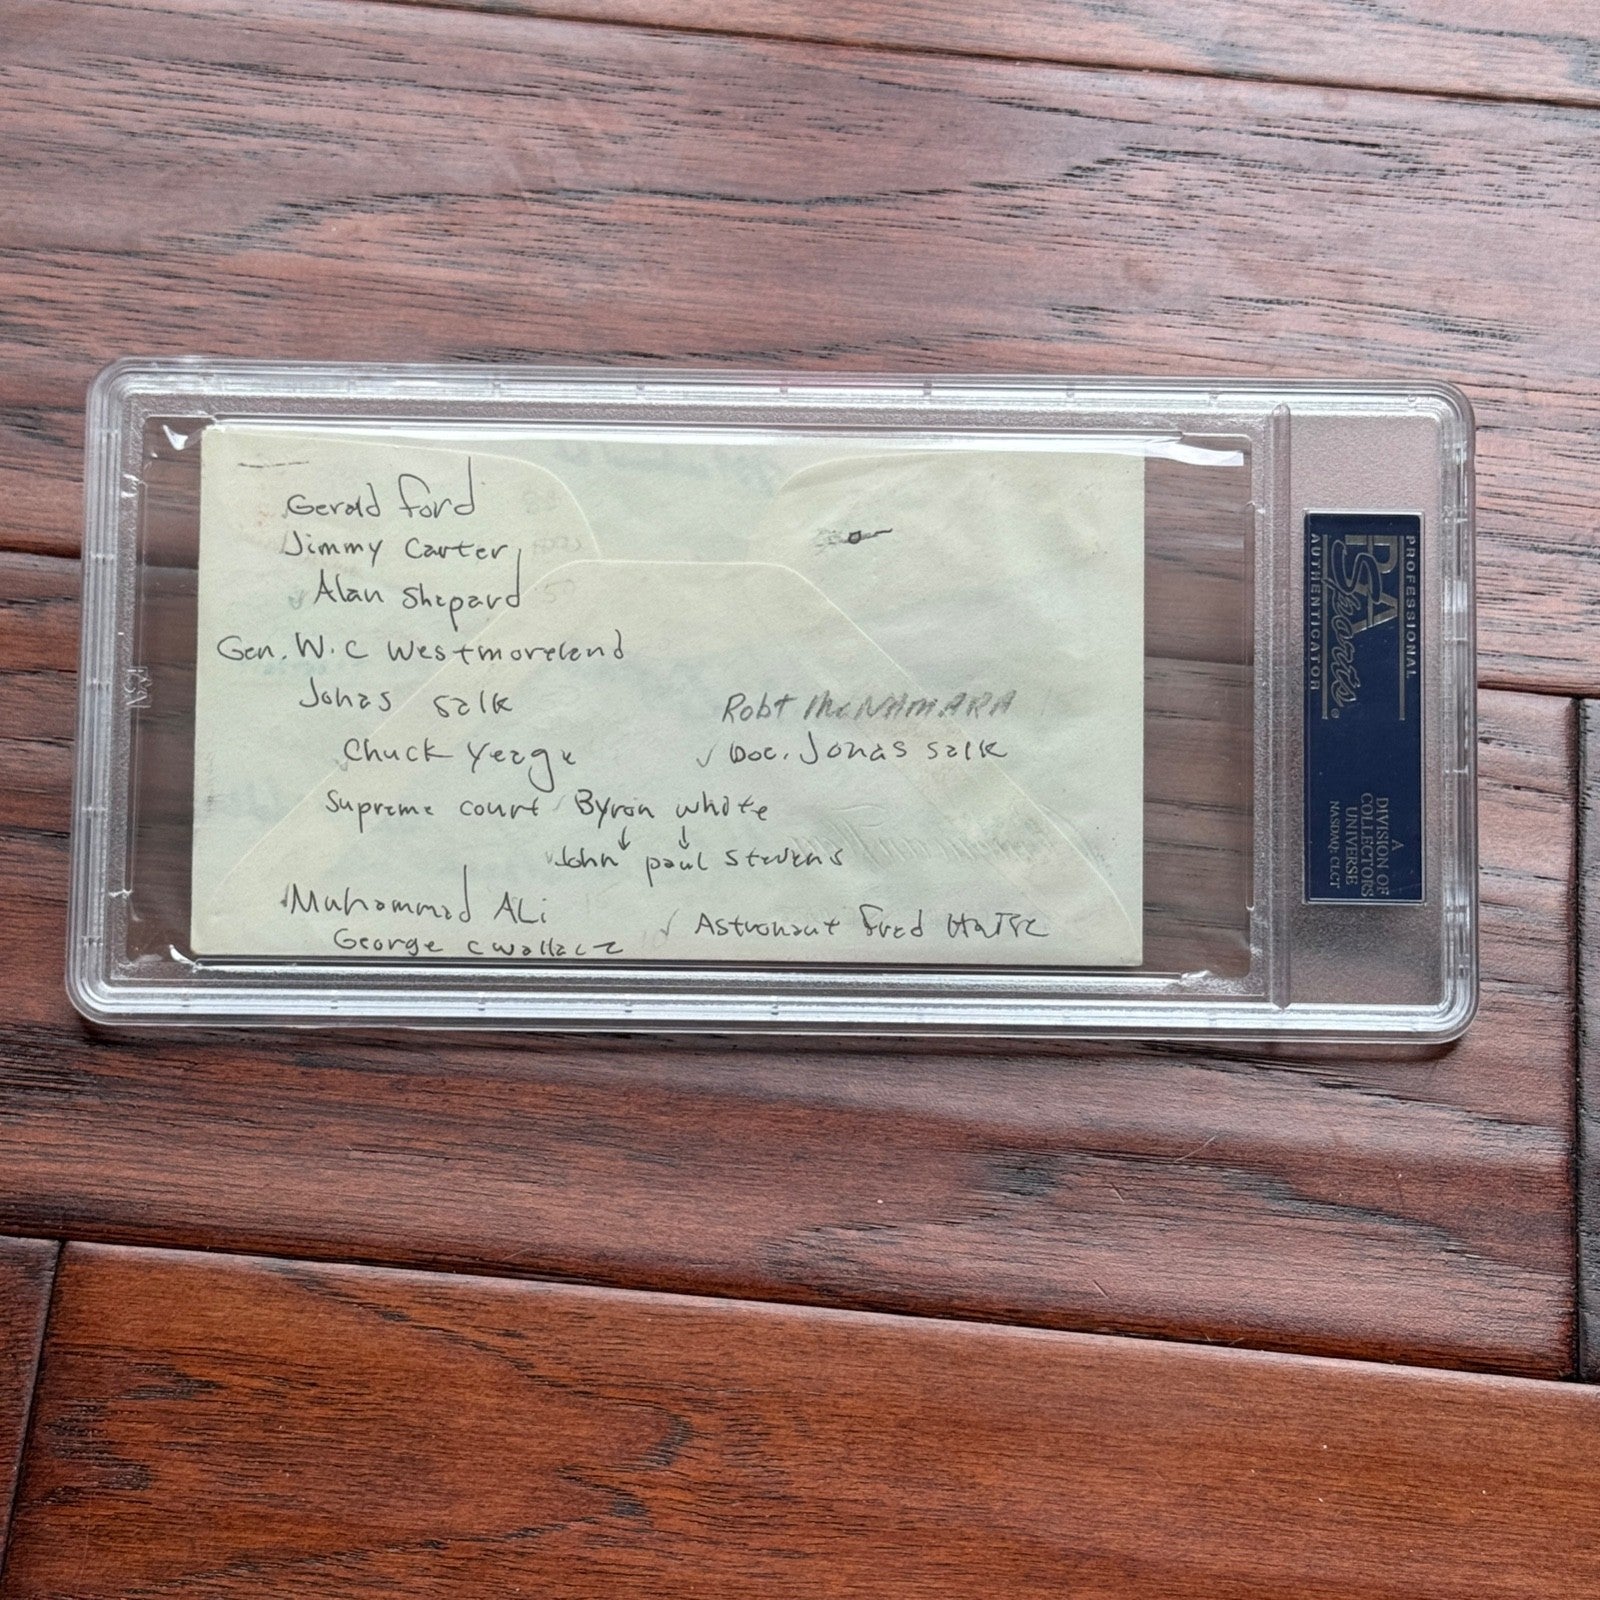 Gerald Ford
Jimmy Carter
Alan Shepard
Gen. W.C Westmoreland
Jonas Salk
Chuck Yeage
Supreme court Byron white
John paul Stevens
Muhammad ALi
George c wallace
Robt McNAMARA
Doc. Jonas Salk
Astronaut Fred HaISE
PROFESSIONAL
PSA
Sports.
AUTHENTICATOR
A
DIVISION OF
COLLECTORS
UNIVERSE
NASDAQ: CLCT